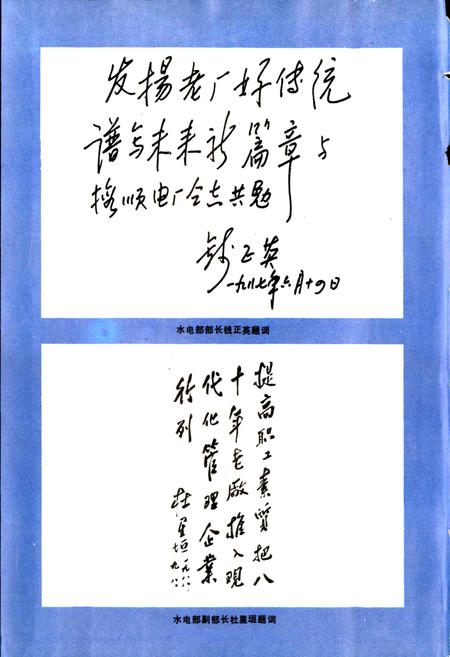 发揚老厂好传统
谱写未来新篇章与
抚顺电厂仝志共勉
钱正英
一九八七年六月十四日
水电部部长钱正英题词
提高职工素質把八
十年老廠推入現
代化管理企業
行列
杜星垣
水电部副部长杜星垣题词